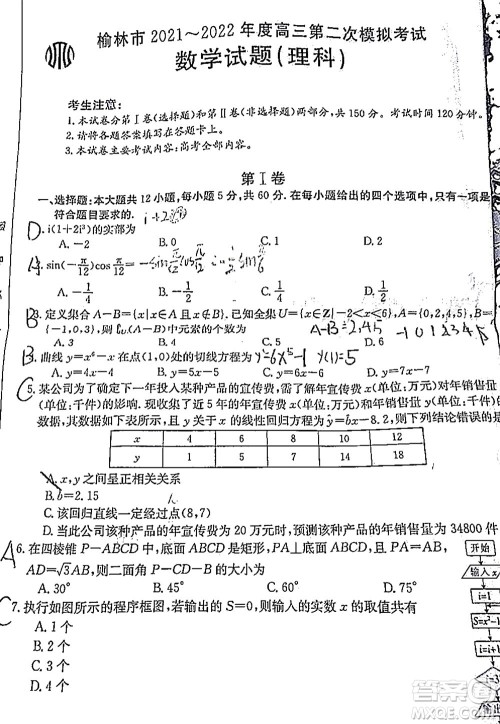 榆林市2021~2022年度高三第二次模拟考试
数学试题(理科)
考生注意:
1.本试卷分第Ⅰ卷(选择题)和第Ⅱ卷(非选择题)两部分,共150分。考试时间120分钟。
2.请将各题答案填写在答题卡上。
3.本试卷主要考试内容:高考全部内容。
第Ⅰ卷
一、选择题:本大题共12小题,每小题5分,共60分.在每小题给出的四个选项中,只有一项是
符合题目要求的.
D
i(1+2i³)的实部为
A.-2 B.0 C.1 D.2
sin(-π/12)cos π/12=
A.-1/4 B.-1/2 C.1/4 D.1/2
3.定义集合A-B={x|x∈A且x∉B}.已知全集U={x∈Z|-2<x<6},A={0,2,4,5},B=
{-1,0,3},则∁U(A-B)中元素的个数为 A-B=2,4,5 -1 0 1 2 3 4 5
A.3 B.4 C.5 D.6
B
曲线y=x⁶-x在点(1,0)处的切线方程为 y'=6x⁵-1 y'(1)=5
A.y=6x-6 B.y=5x-5 C.y=8x-8 D.y=7x-7
C
5.某公司为了确定下一年投入某种产品的宣传费,需了解年宣传费x(单位:万元)对年销售量y
(单位:千件)的影响.现收集了近5年的年宣传费x(单位:万元)和年销售量y(单位:千件)的
数据,其数据如下表所示,且y关于x的线性回归方程为ŷ=bx-8.2,则下列结论错误的是
x 4 6 8 10 12
y 1 5 7 14 18
A.x,y之间呈正相关关系
B.b=2.15
C.该回归直线一定经过点(8,7)
D.当此公司该种产品的年宣传费为20万元时,预测该种产品的年销售量为34800件
A
6.在四棱锥P-ABCD中,底面ABCD是矩形,PA⊥底面ABCD,且PA=AB,
AD=√3AB,则二面角P-CD-B的大小为
A.30° B.45° C.60° D.75°
C
7.执行如图所示的程序框图,若输出的S=0,则输入的实数x的取值共有
A.1个
B.2个
C.3个
D.4个
开始
i=1
S=x²-1
i=i+1
答案圈
MXQE.COM